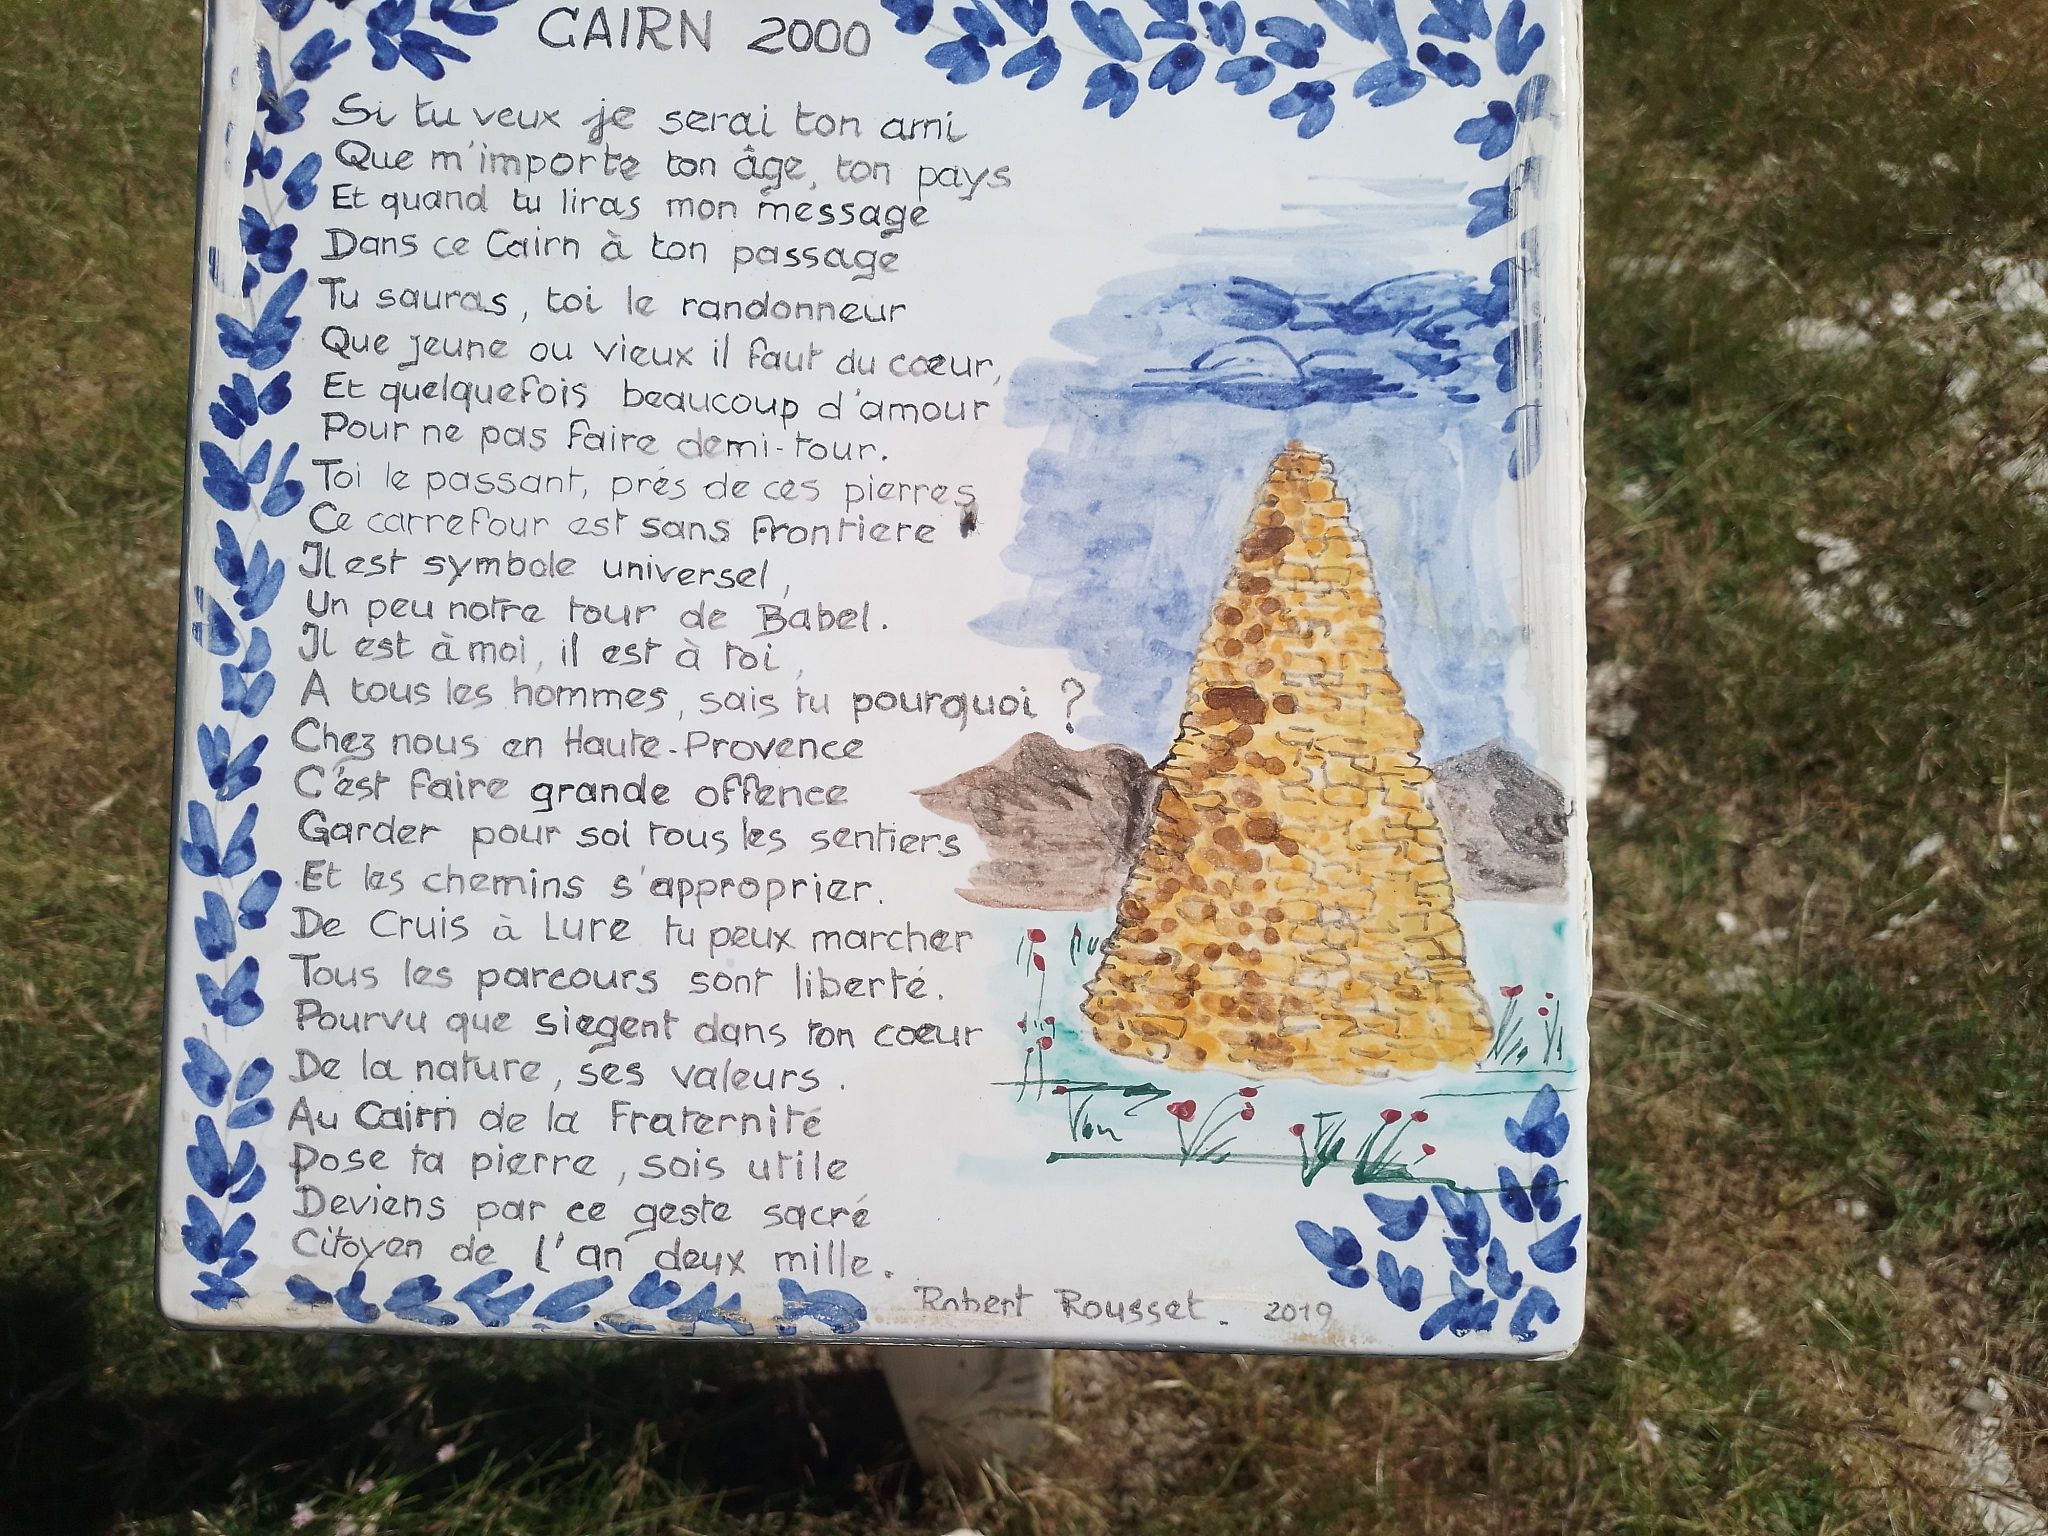 CAIRN 2000
Si tu veux je serai ton ami
Que m'importe ton âge, ton pays
Et quand tu liras mon message
Dans ce Cairn à ton passage
Tu sauras, toi le randonneur
Que jeune ou vieux il faut du cœur,
Et quelquefois beaucoup d'amour
Pour ne pas faire demi-tour.
Toi le passant, prés de ces pierres
Ce carrefour est sans frontiere
Il est symbole universel,
Un peu notre tour de Babel.
Il est à moi, il est à toi,
A tous les hommes, sais tu pourquoi ?
Chez nous en Haute-Provence
C'est faire grande offence
Garder pour soi tous les sentiers
Et les chemins s'approprier.
De Cruis à Lure tu peux marcher
Tous les parcours sont liberté.
Pourvu que siegent dans ton cœur
De la nature, ses valeurs.
Au Cairn de la Fraternité
Pose ta pierre, sois utile
Deviens par ce geste sacré
Citoyen de l'an deux mille.
Robert Rousset. 2019